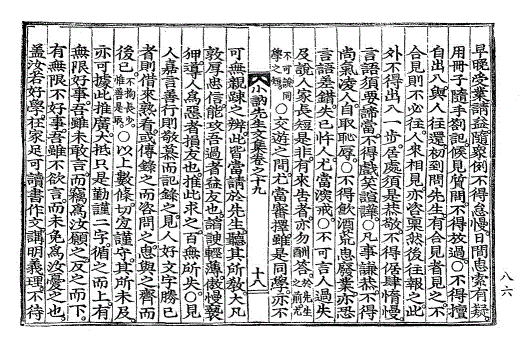 早晚受業請益隨衆例不得怠慢日間思索有疑
用冊子隨手劄記候見質問不得放過○不得擅
自出入與人往還初到問先生有合見者見之不
合見則不必往人來相見亦啓稟然後往報之此
外不得出入一步居處須是恭敬不得倨肆惰慢
言語須要諦當不得戲笑諠譁○凡事謙恭不得
尚氣凌人自取恥辱○不得飲酒荒思廢業亦恐
言語差錯失己忤人尤當深戒○不可言人過失
及說人家長短是非有來告者亦勿酬答於先生之前尤
不可說同學之短○交遊之間尤當審擇雖是同學亦不
小訥先生文集卷之十九
十八
可無親踈之辨此皆當請於先生聽其所教大凡
敦厚忠信能攻吾過者益友也諂諛輕薄傲慢褻
狎導人爲惡者損友也推此求之百無所失○見
人嘉言善行則敬慕而記錄之見人好文字勝己
者則借來熟看或傳錄之而咨問之思與之齊而
後已不拘長少惟善是取○以上數條切宜謹守其所未及
亦可據此推廣大抵只是勤謹二字循之而上有
無限好事吾雖未敢言而竊爲汝願之反之而下
有無限不好事吾雖不欲言而未免爲汝憂之也
盖汝若好學在家足可讀書作文講明義理不待
八六